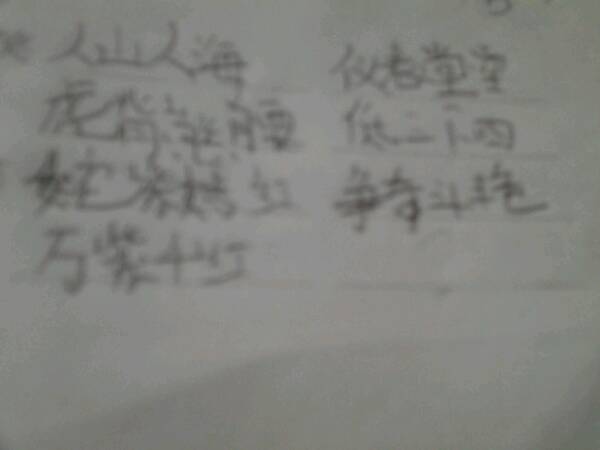 人山人海 仪表堂堂
虎背熊腰 低三下四
姹紫嫣红 争奇斗艳
万紫千红